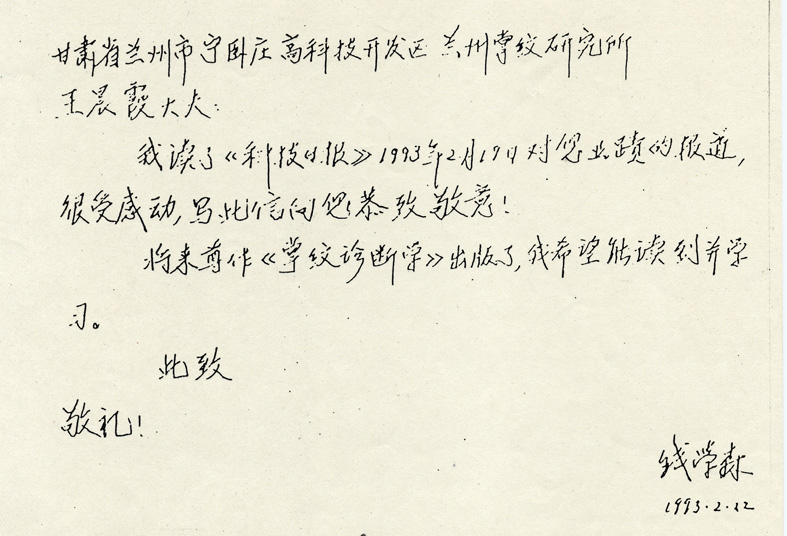 甘肃省兰州市宁卧庄高科技开发区 兰州掌纹研究所
王晨霞大夫:
我读了《科技日报》1993年2月19日对您业蹟的报道,
很受感动,写此信向您恭致敬意!
将来尊作《掌纹诊断学》出版了,我希望能读到并学
习。
此致
敬礼!
钱学森
1993.2.22